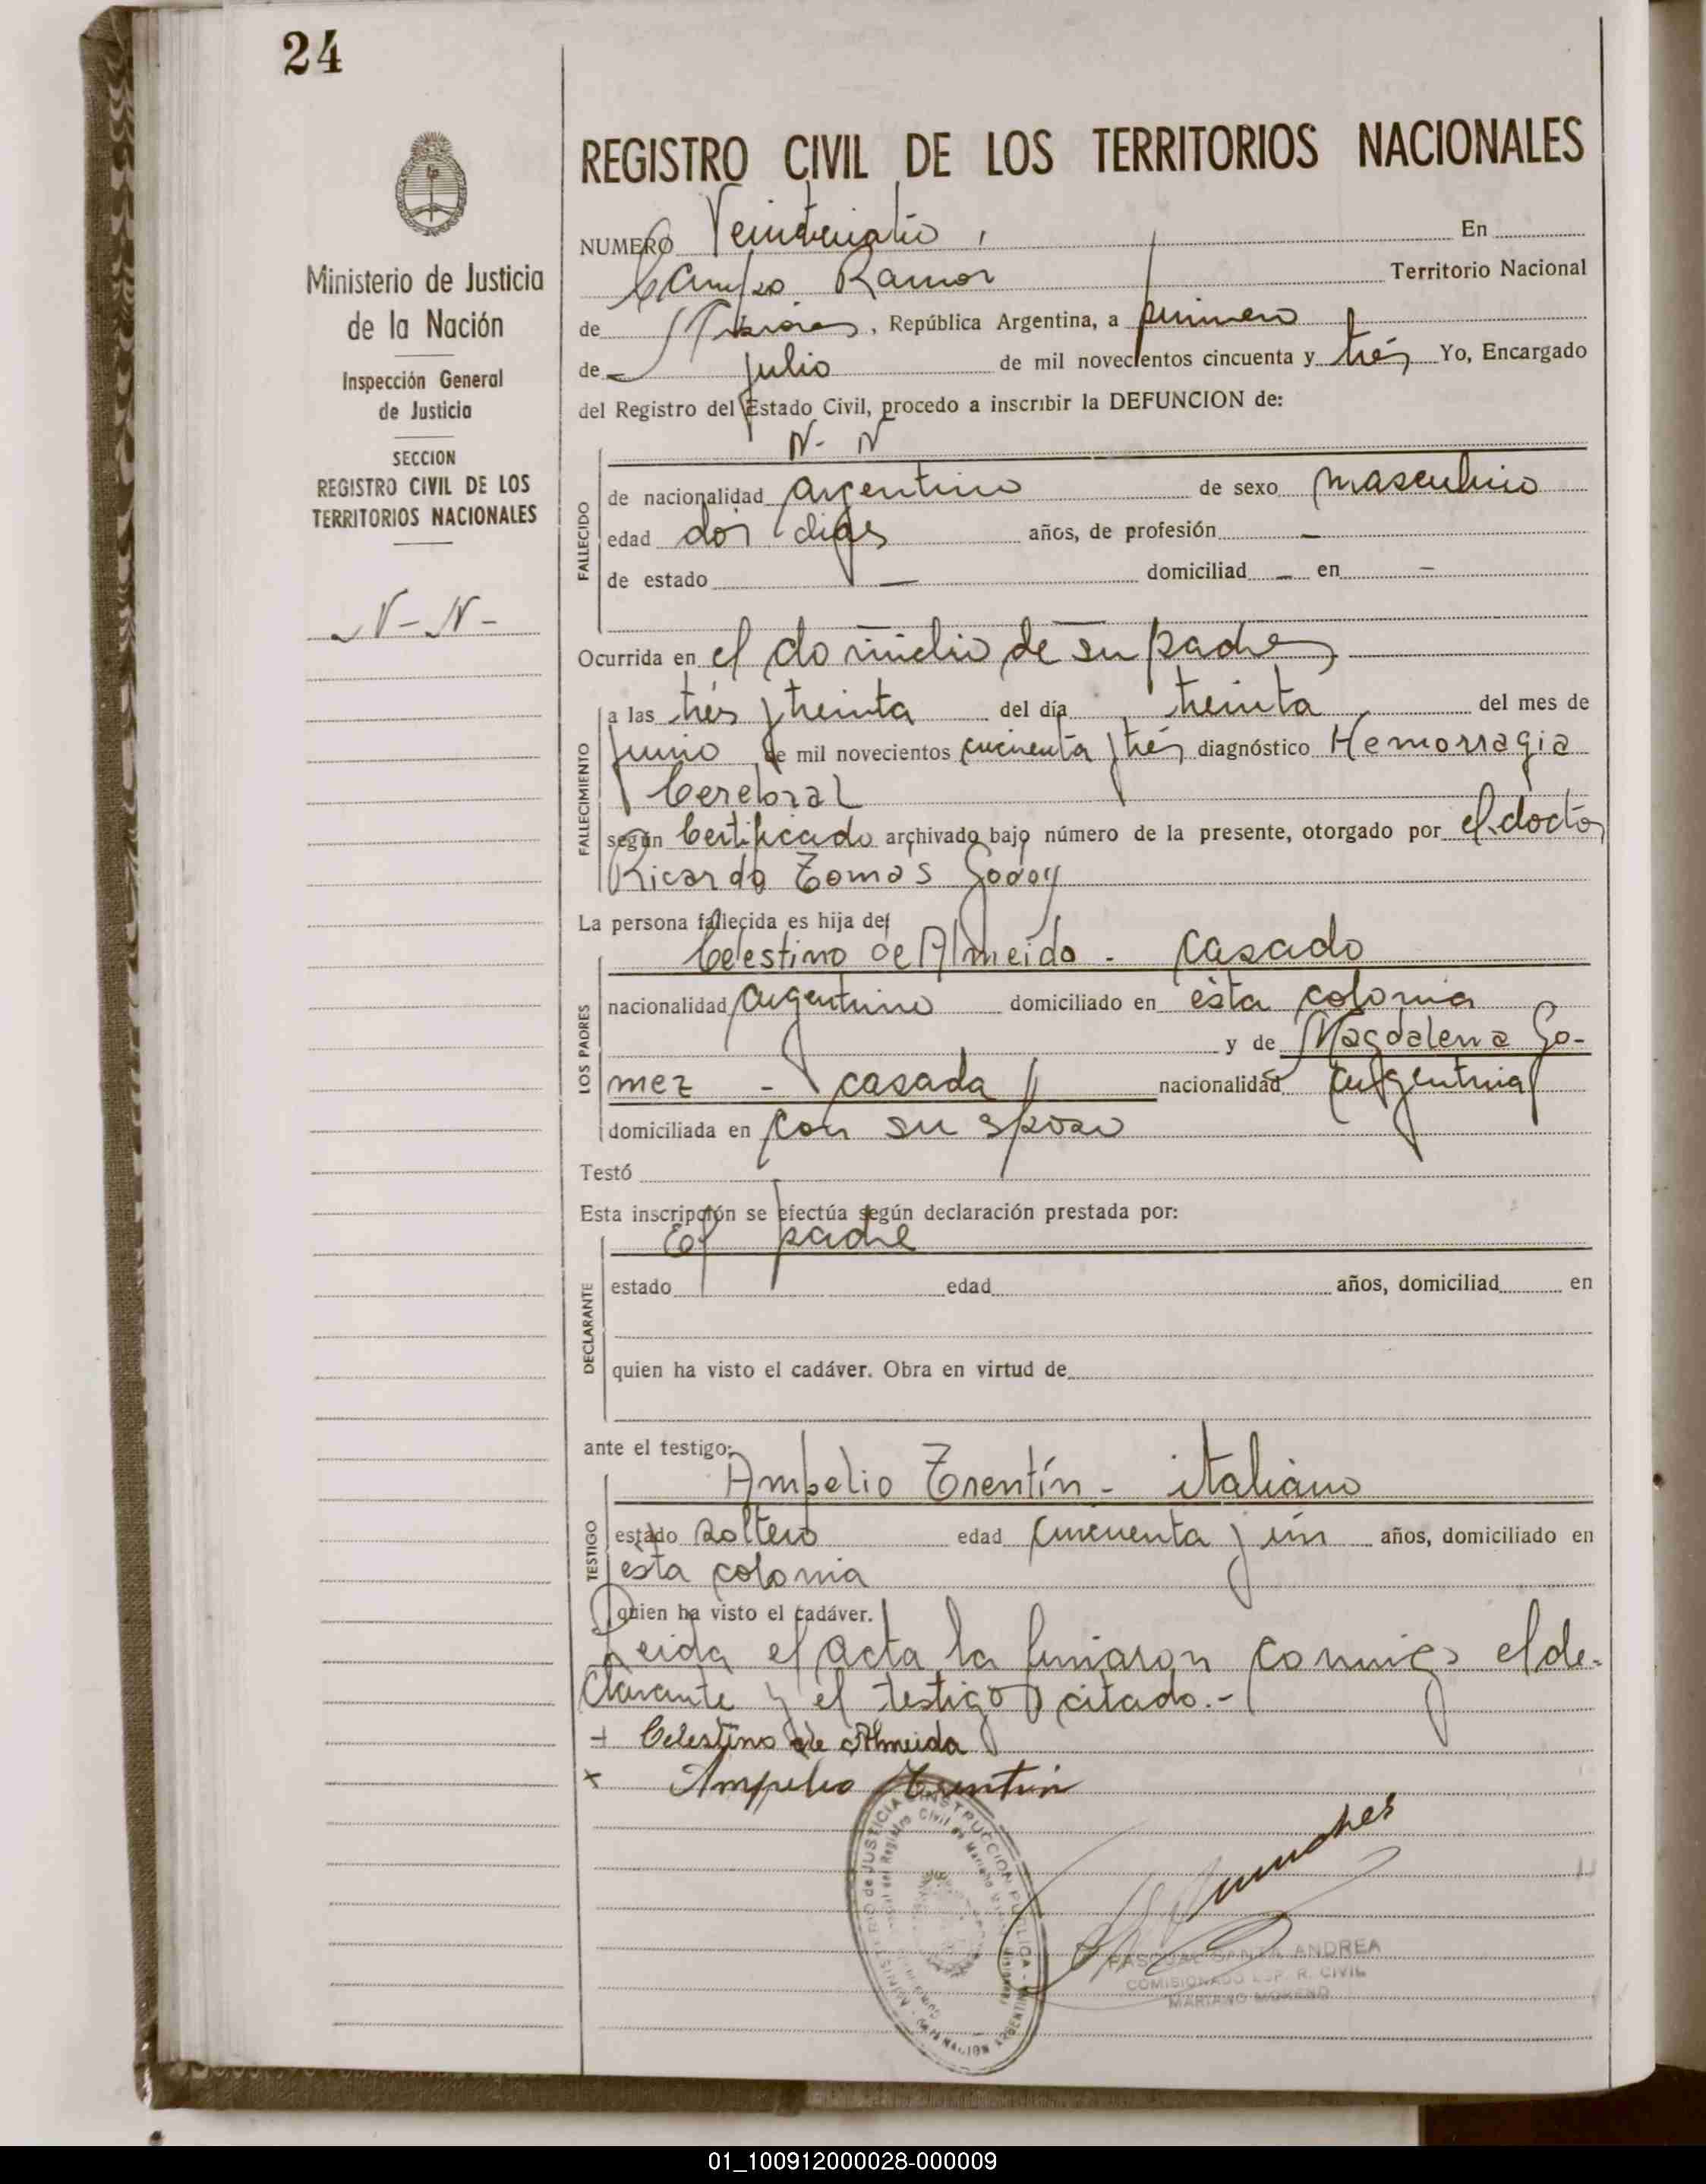 24
REGISTRO CIVIL DE LOS TERRITORIOS NACIONALES
Ministerio de Justicia
de la Nación
Inspección General
de Justicia
SECCION
REGISTRO CIVIL DE LOS
TERRITORIOS NACIONALES
N-N-
NUMERO Veinticuatro, En
Campo Ramon Territorio Nacional
de Misiones, República Argentina, a primero
de julio de mil novecientos cincuenta y trés Yo, Encargado
del Registro del Estado Civil, procedo a inscribir la DEFUNCION de:
N- N
FALLECIDO
de nacionalidad argentino de sexo masculino
edad dos dias años, de profesión —
de estado — domiciliad — en —
Ocurrida en el domicilio de su padre,
FALLECIMIENTO
a las trés y treinta del día treinta del mes de
junio de mil novecientos cincuenta y trés diagnóstico Hemorragia
Cerebral
según Certificado archivado bajo número de la presente, otorgado por el doctor
Ricardo Tomas Godoy
La persona fallecida es hija de:
LOS PADRES
Celestino de Almeida - casado
nacionalidad argentino domiciliado en ésta colonia
y de Magdalena Go-
mez - casada nacionalidad argentina
domiciliada en con su sposo
Testó
Esta inscripción se efectúa según declaración prestada por:
DECLARANTE
El padre
estado edad años, domiciliad en
quien ha visto el cadáver. Obra en virtud de
ante el testigo:
TESTIGO
Ampelio Trentín - italiano
estado soltero edad cincuenta y un años, domiciliado en
ésta colonia
quien ha visto el cadáver.
Leida el acta la firmaron conmigo el de-
clarante y el testigo citado.-
+ Celestino de Almeida
x Ampelio Trentin
MINISTERIO de JUSTICIA INSTRUCCION PUBLICA
PASCUAL SANTA ANDREA
COMISIONADO ESP. R. CIVIL
MARIANO MORENO
01_100912000028-000009